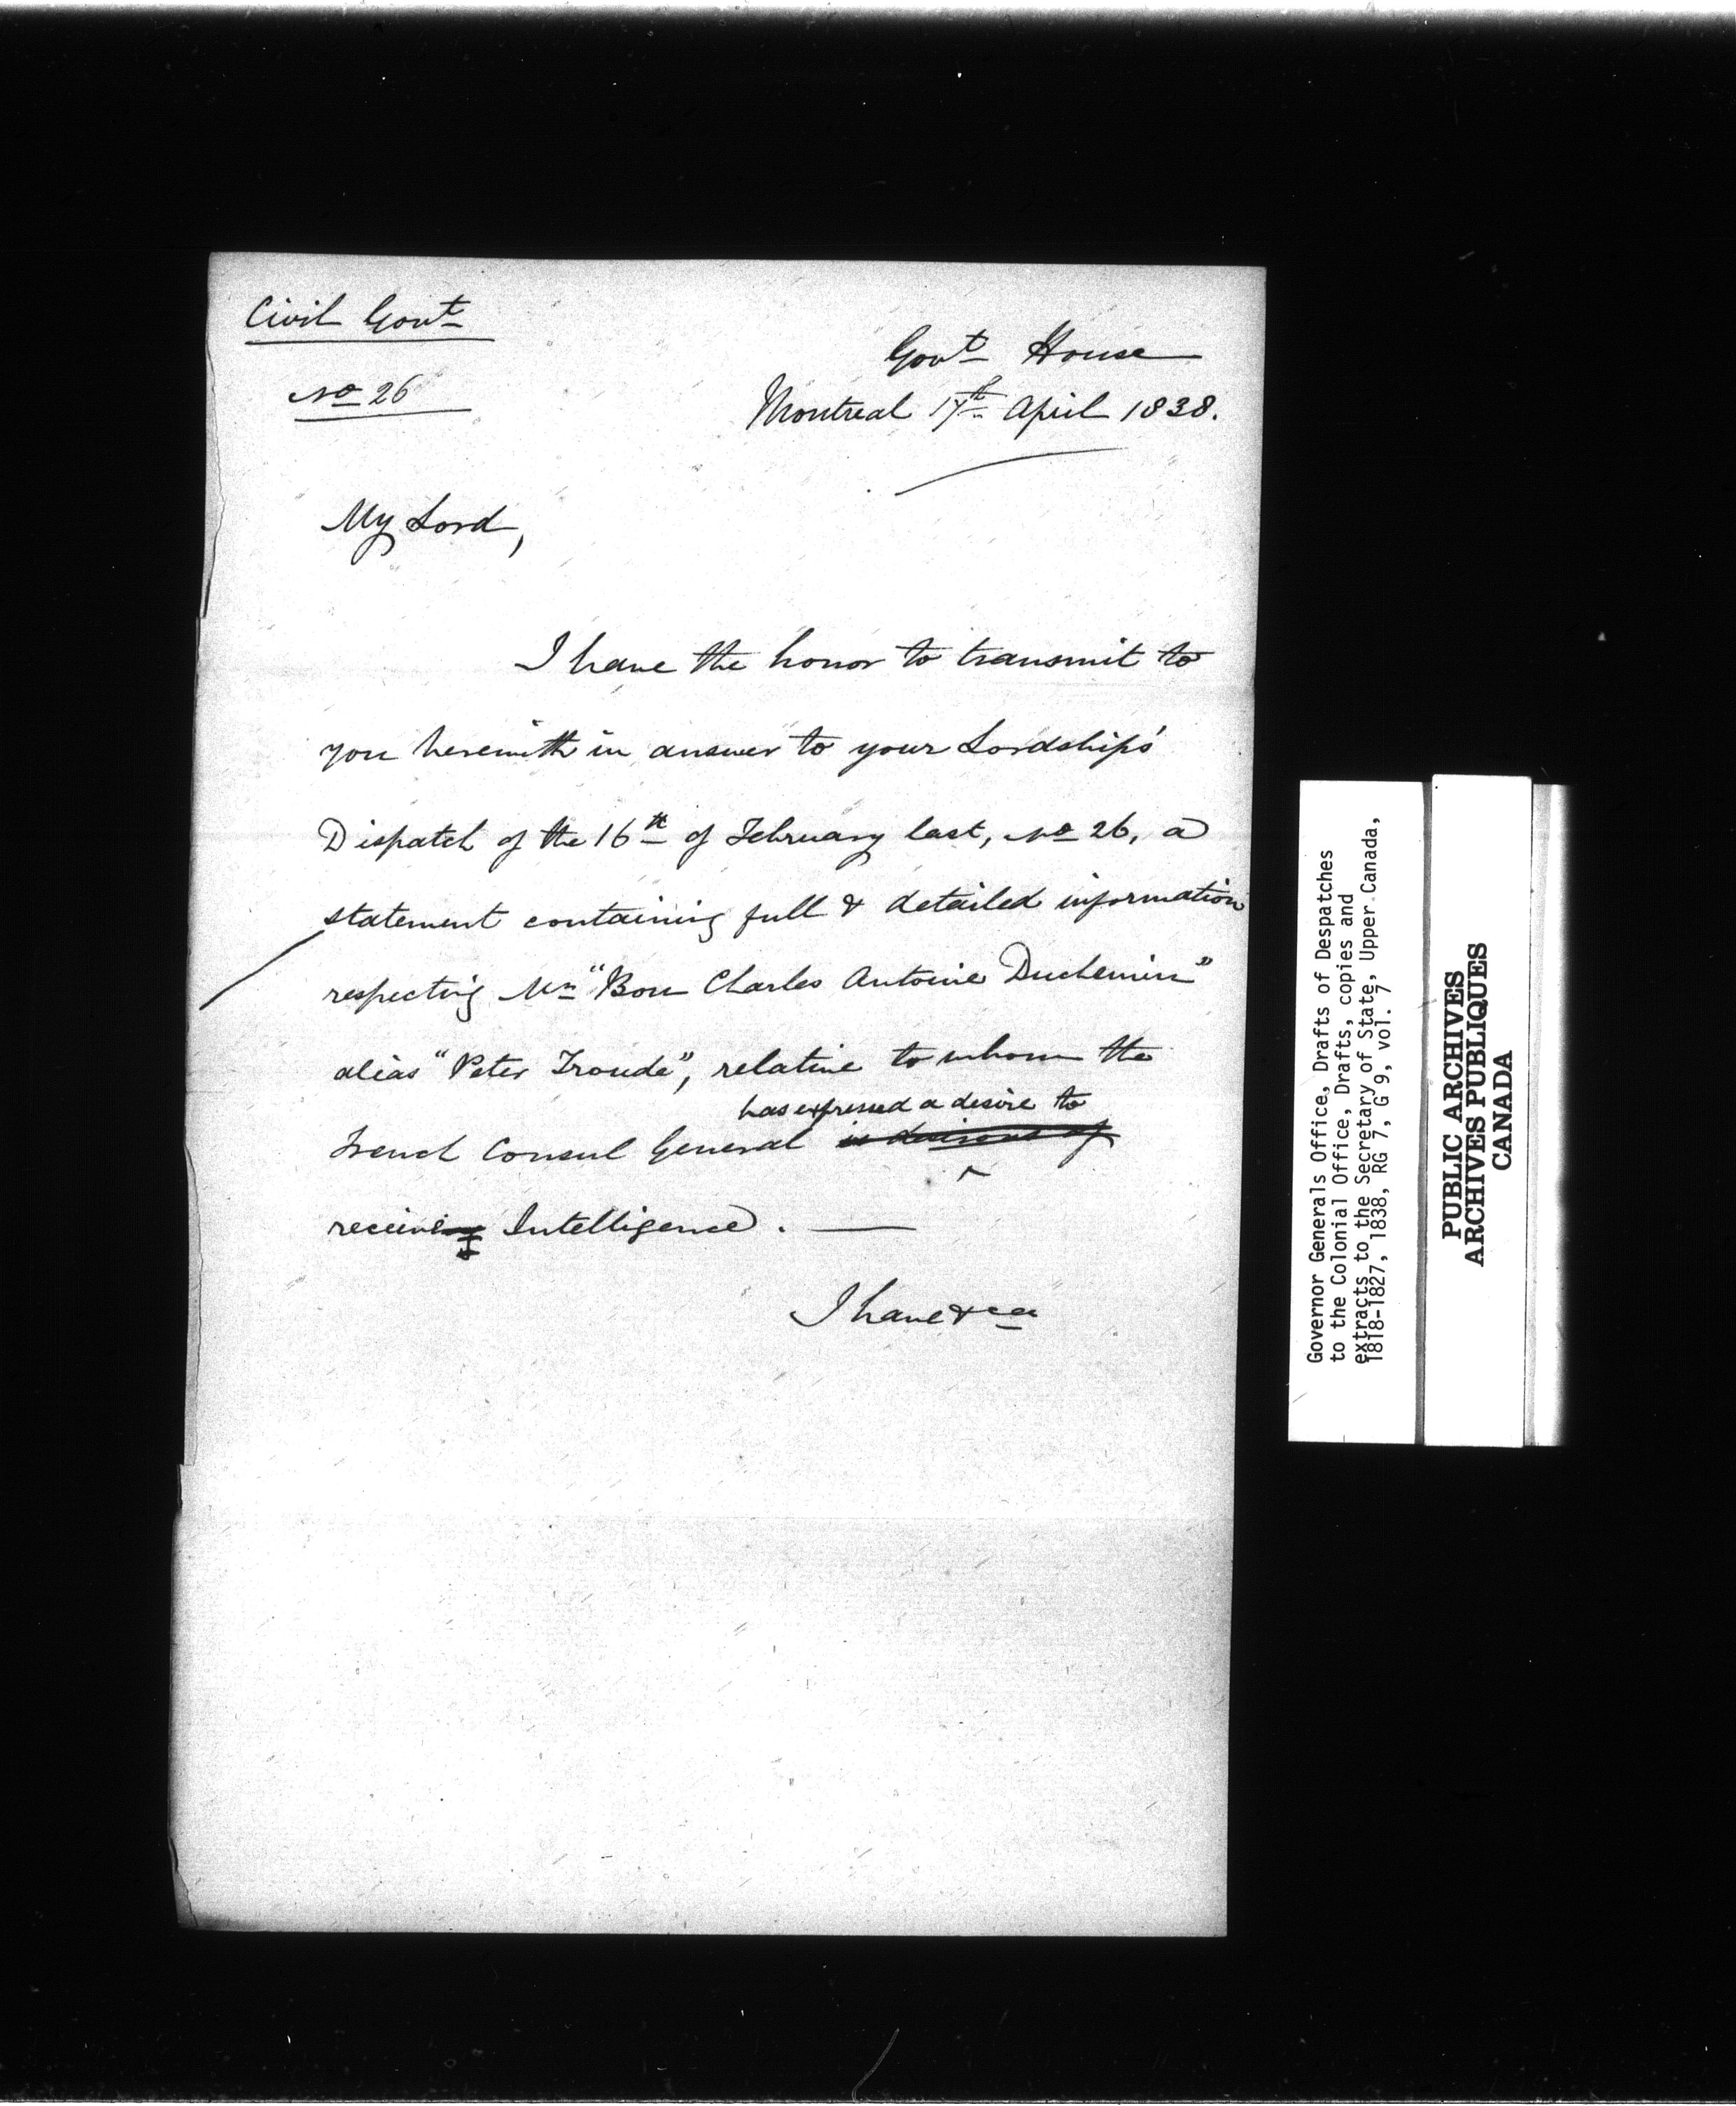 Civil Govt
No 26
Govt House
Montreal 17th April 1838.
My Lord,
I have the honor to transmit to
you herewith in answer to your Lordships'
Dispatch of the 16th of February last, No 26, a
statement containing full & detailed information
respecting Mr "Bon Charles Antoine Duchemin"
alias "Peter Troude", relative to whom the
has expressed a desire to
French Consul General is desirous of
receiving Intelligence. —
I have &ca
Governor Generals Office, Drafts of Despatches
to the Colonial Office, Drafts, copies and
extracts to the Secretary of State, Upper Canada,
1818-1827, 1838, RG 7, G 9, vol. 7
PUBLIC ARCHIVES
ARCHIVES PUBLIQUES
CANADA